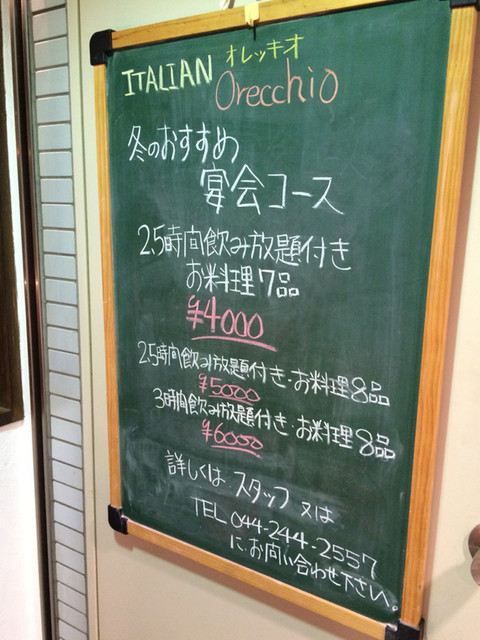 オレッキオ
ITALIAN Orecchio
冬のおすすめ
宴会コース
2.5時間飲み放題付き
お料理7品
¥4000
2.5時間飲み放題付き・お料理8品
¥5000
3時間飲み放題付き・お料理8品
¥6000
詳しくは、スタッフ 又は
TEL 044-244-2557
に、お問い合わせ下さい。